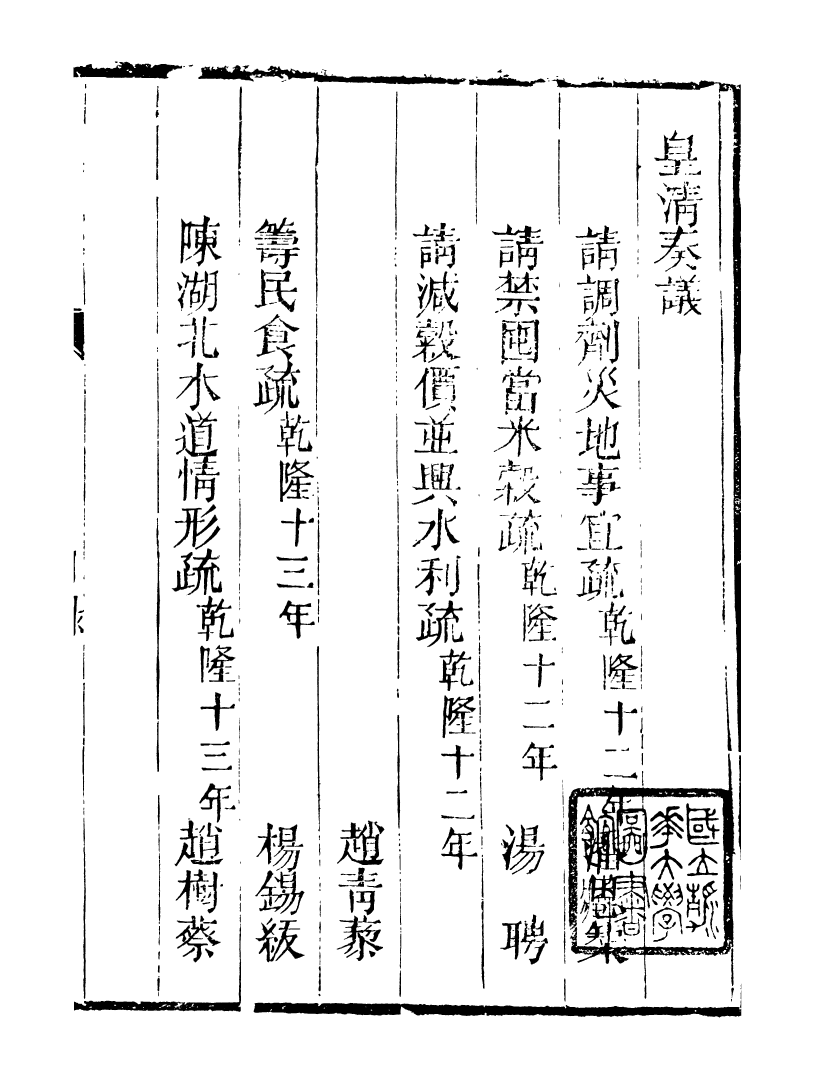 皇清奏議
請調劑災地事宜疏乾隆十二年
請禁囤當米穀疏乾隆十二年 湯聘
請減穀價並興水利疏乾隆十二年
趙青藜
籌民食疏乾隆十三年 楊錫紱
陳湖北水道情形疏乾隆十三年 趙樹蔡
國立清
華大學
圖書